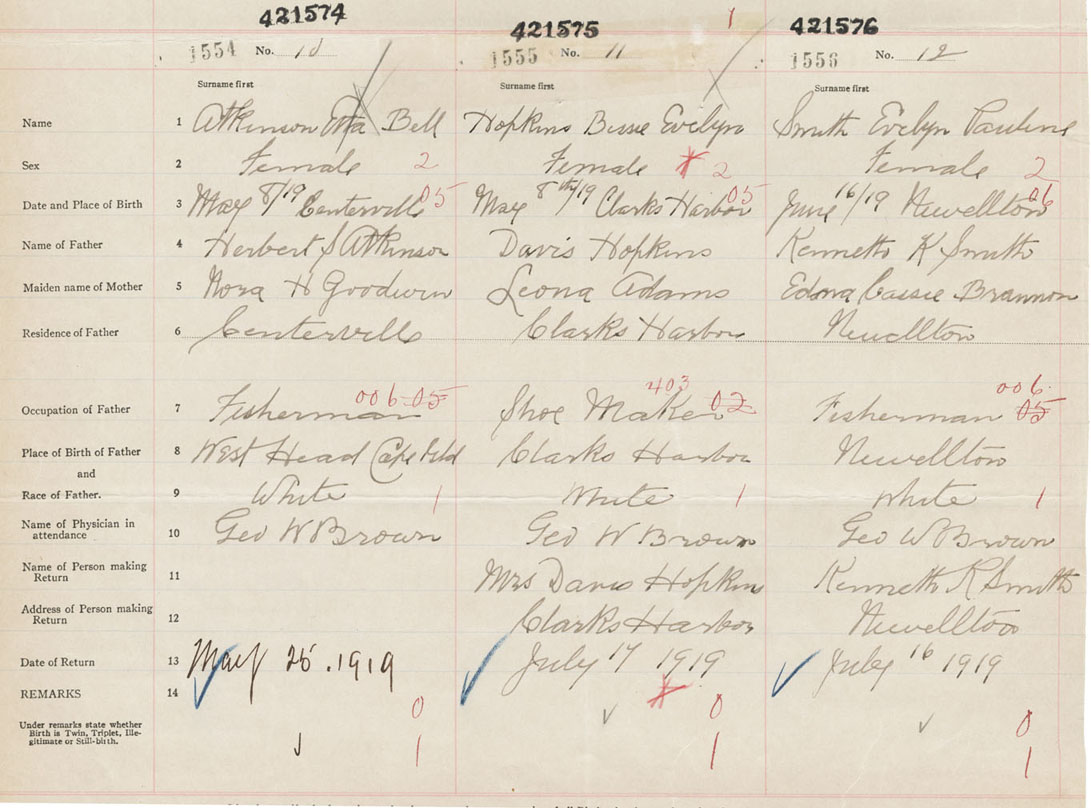 421574 421575 421576
1554 No. 10 1555 No. 11 1556 No. 12
Surname first Surname first Surname first
Name 1 Atkinson Etta Bell Hopkins Bessie Evelyn Smith Evelyn Pauline
Sex 2 Female 2 Female 2 Female 2
Date and Place of Birth 3 May 8/19 Centerville 05 May 8th/19 Clarks Harbor 05 June 16/19 Newellton 06
Name of Father 4 Herbert S Atkinson Davis Hopkins Kenneth K Smith
Maiden name of Mother 5 Nora H Goodwin Leona Adams Edna Cassie Brannon
Residence of Father 6 Centerville Clarks Harbor Newellton
006 05 403 02 006
Occupation of Father 7 Fisherman Shoe Maker Fisherman 05
Place of Birth of Father 8 West Head Cape Isld Clarks Harbor Newellton
and
Race of Father. 9 White 1 White 1 White 1
Name of Physician in
attendance 10 Geo W Brown Geo W Brown Geo W Brown
Name of Person making
Return 11 Mrs Davis Hopkins Kenneth K Smith
Address of Person making
Return 12 Clarks Harbor Newellton
Date of Return 13 May 25. 1919 July 17 1919 July 16 1919
REMARKS 14
0 0 0
Under remarks state whether
Birth is Twin, Triplet, Ille-
gitimate or Still-birth.
1 1 1